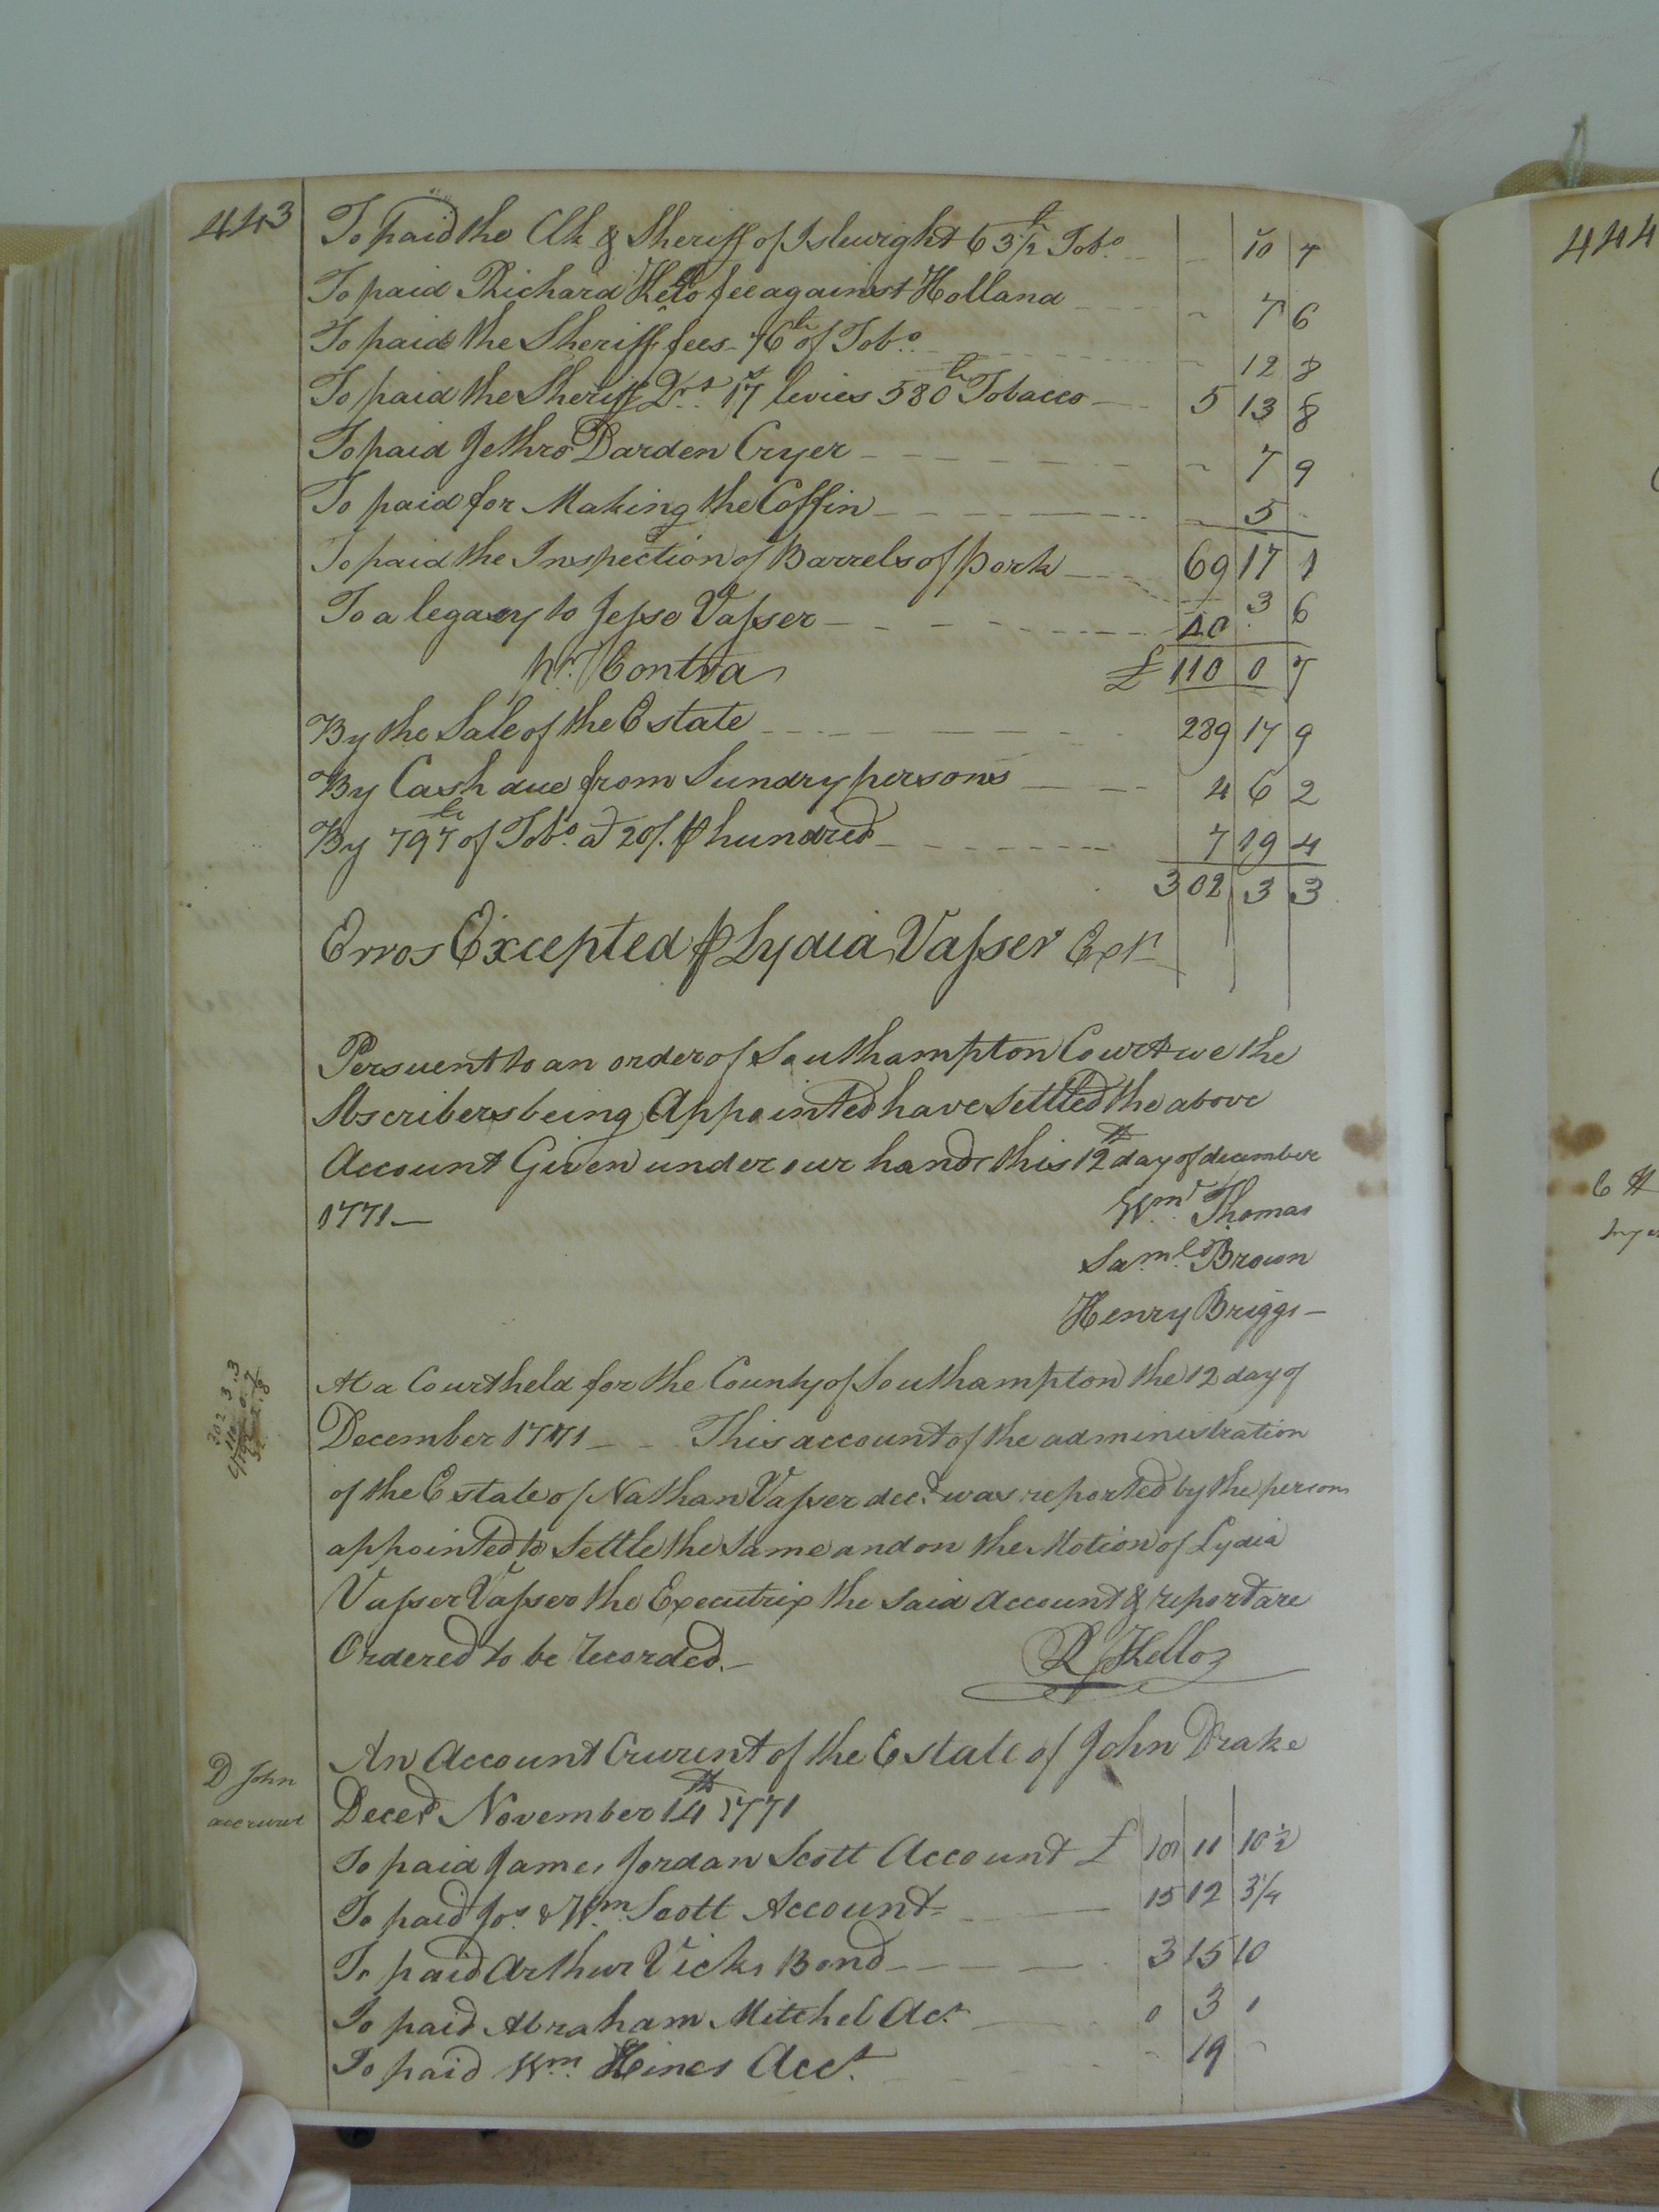 443
444
To paid the Clk & Sheriff of Islewight 63½ lb Tobo. 10 7
To paid Richard Kello fee against Holland 7 6
To paid the Sheriff fees 76 lb of Tobo. 12 8
To paid the Sheriff Drs. 17 levies 580 lb Tobacco 5 13 8
To paid Jethro Darden Cryer 7 9
To paid for Making the Coffin 5
69 17 1
To paid the Inspection of Barrels of pork 3 6
To a legacy to Jesse Vasser 40
£ 110 0 7
Pr. Contra
By the Sale of the Estate 289 17 9
By Cash due from Sundry persons 4 6 2
By 797 lb of Tobo. at 20/. ⅌ hundred 7 19 4
302 3 3
Erros Excepted ⅌ Lydia Vasser Exr
Persuent to an order of Southampton Court we the
Sbscribers being Appointed have Settled the above
Account Given under our hands this 12th day of december
1771
Wm. Thomas
Saml. Brown
Henry Briggs
302 3 3
110 0 7
At a Court held for the County of Southampton the 12 day of
December 1771 This account of the administration
of the Estate of Nathan Vasser decd. was reported by the persons
appointed to Settle the Same and on the Motion of Lydia
Vasser Vasser the Executrix the Said Account & report are
Ordered to be recorded.
R Kello
D John
accurnt
An Account Currint of the Estate of John Drake
Deced November 14th 1771
To paid James Jordan Scott Account £ 11 10½
To paid Jos. & Wm. Scott Account 15 12 3¼
To paid Arthur Vicks Bond 3 15 10
To paid Abraham Mitchel Act. 0 3 1
To paid Wm. Hines Acct. 19